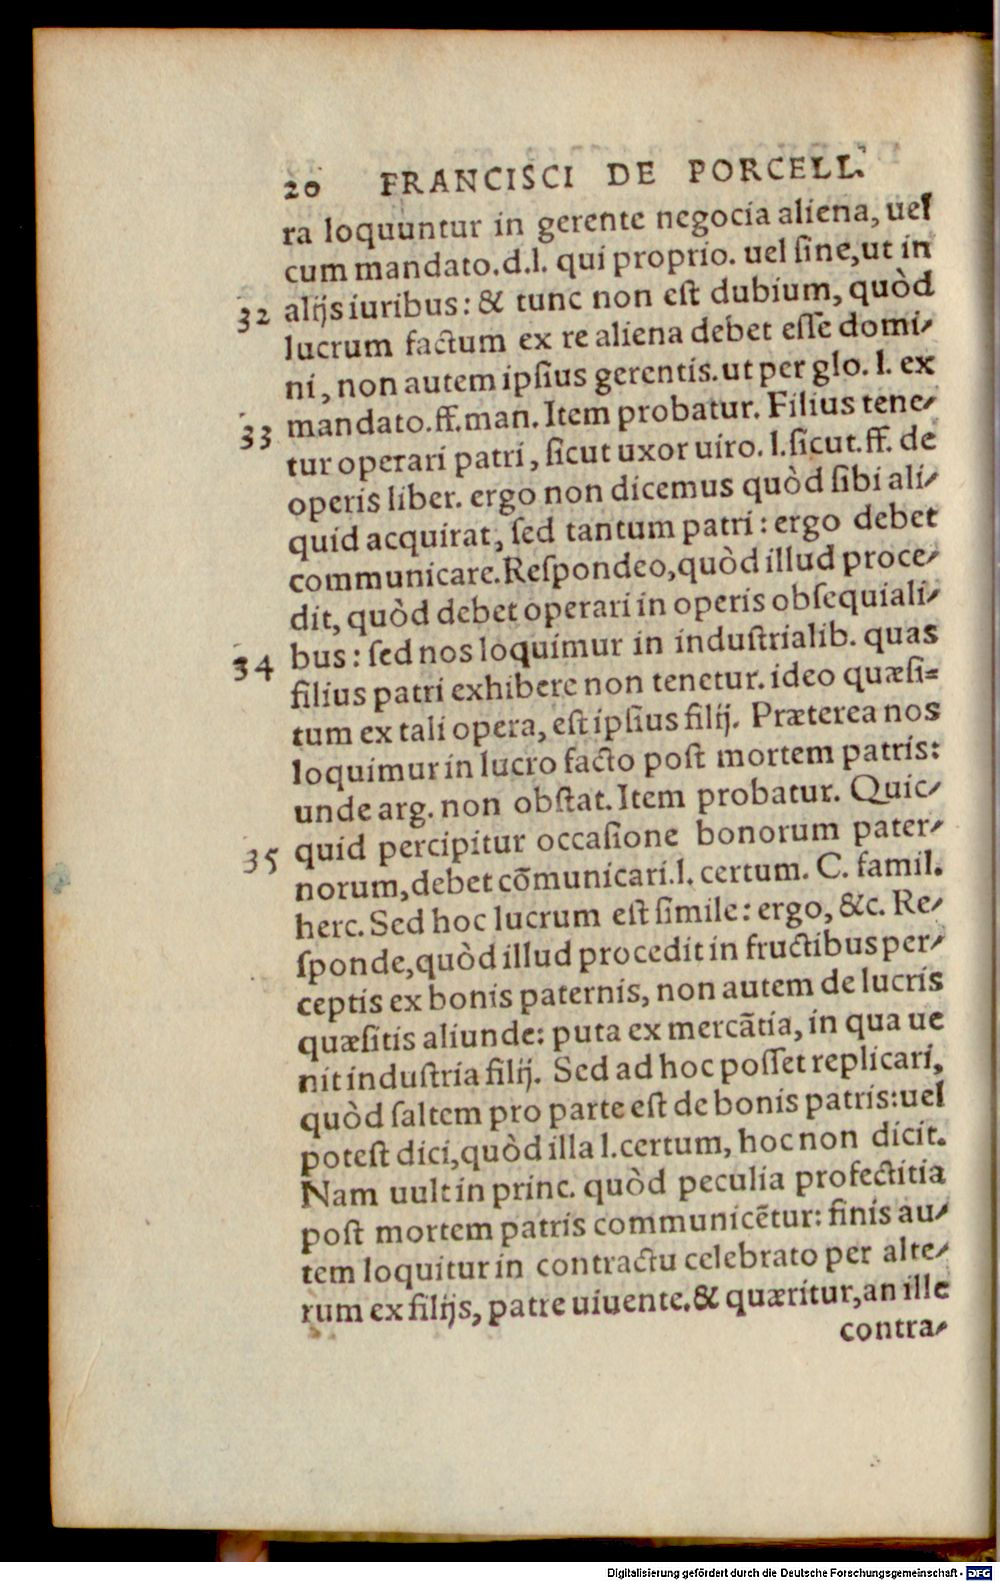 20 FRANCISCI DE PORCELL.
ra loquuntur in gerente negocia aliena, uel
cum mandato.d.l. qui proprio. uel ſine,ut in
32 alijs iuribus: & tunc non eſt dubium, quòd
lucrum factum ex re aliena debet eſſe domi-
ni, non autem ipſius gerentis.ut per glo. l. ex
33 mandato.ff.man. Item probatur. Filius tene-
tur operari patri, ſicut uxor uiro. l.ſicut.ff. de
operis liber. ergo non dicemus quòd ſibi ali-
quid acquirat, ſed tantum patri: ergo debet
communicare.Reſpondeo,quòd illud proce-
dit, quòd debet operari in operis obſequiali-
34 bus: ſed nos loquimur in induſtrialib. quas
filius patri exhibere non tenetur. ideo quæſi=
tum ex tali opera, eſt ipſius filij. Præterea nos
loquimur in lucro facto poſt mortem patris:
unde arg. non obſtat. Item probatur. Quic-
35 quid percipitur occaſione bonorum pater-
norum,debet cõmunicari.l. certum. C. famil.
herc. Sed hoc lucrum eſt ſimile: ergo, &c. Re-
ſponde,quòd illud procedit in fructibus per-
ceptis ex bonis paternis, non autem de lucris
quæſitis aliunde: puta ex mercãtia, in qua ue
nit induſtria filij. Sed ad hoc poſſet replicari,
quòd ſaltem pro parte eſt de bonis patris:uel
poteſt dici,quòd illa l.certum, hoc non dicit.
Nam uult in princ. quòd peculia profectitia
poſt mortem patris communicẽtur: finis au-
tem loquitur in contractu celebrato per alte-
rum ex filijs, patre uiuente.& quæritur,an ille
contra-
Digitalisierung gefördert durch die Deutsche Forschungsgemeinschaft - DFG